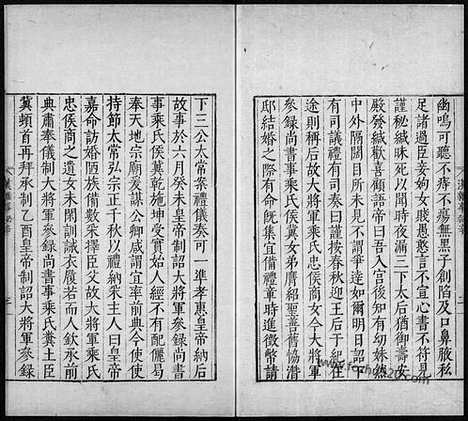 幽鳴可聽不痔不瘍無黑子創陷及口鼻腋私
足諸過臣妾姁女賤愚憨言不宣心書不符見
謹秘緘昧死以聞時三下太后猶御壽安
殿發緘歡喜顧語帝曰吾有幼妹
中外隔閡以不見不謂爭達如爾明日詔下
有司議禮有司奏曰謹按春秋迎王后于紀在
途則稱后故大將軍乘氏忠侯商女今大將軍
參錄尚書事乘氏侯冀女弟膺紹聖善舊恊潛
邸結婚之際有命既集宜備禮章時進徵幣請
下三公太常案禮儀奏可一準孝惠皇帝納后
故事於六月癸未皇帝制詔大將軍參錄尚書
事乘氏侯冀乾施坤受實始人經不有配儷曷
奉天地宗廟爰謀公卿咸謂宜率典今使使
持節太常弘宗正千秋以禮納采曰皇帝
嘉命訪婚陋族備數采擇臣父故大將軍乘氏
忠侯商之遺女未閑訓誡衣履若而人欽承前
典肅奉儀制大將軍參錄尚書事乘氏糞土臣
冀頓首再拜承制乙酉皇帝制詔大將軍參錄